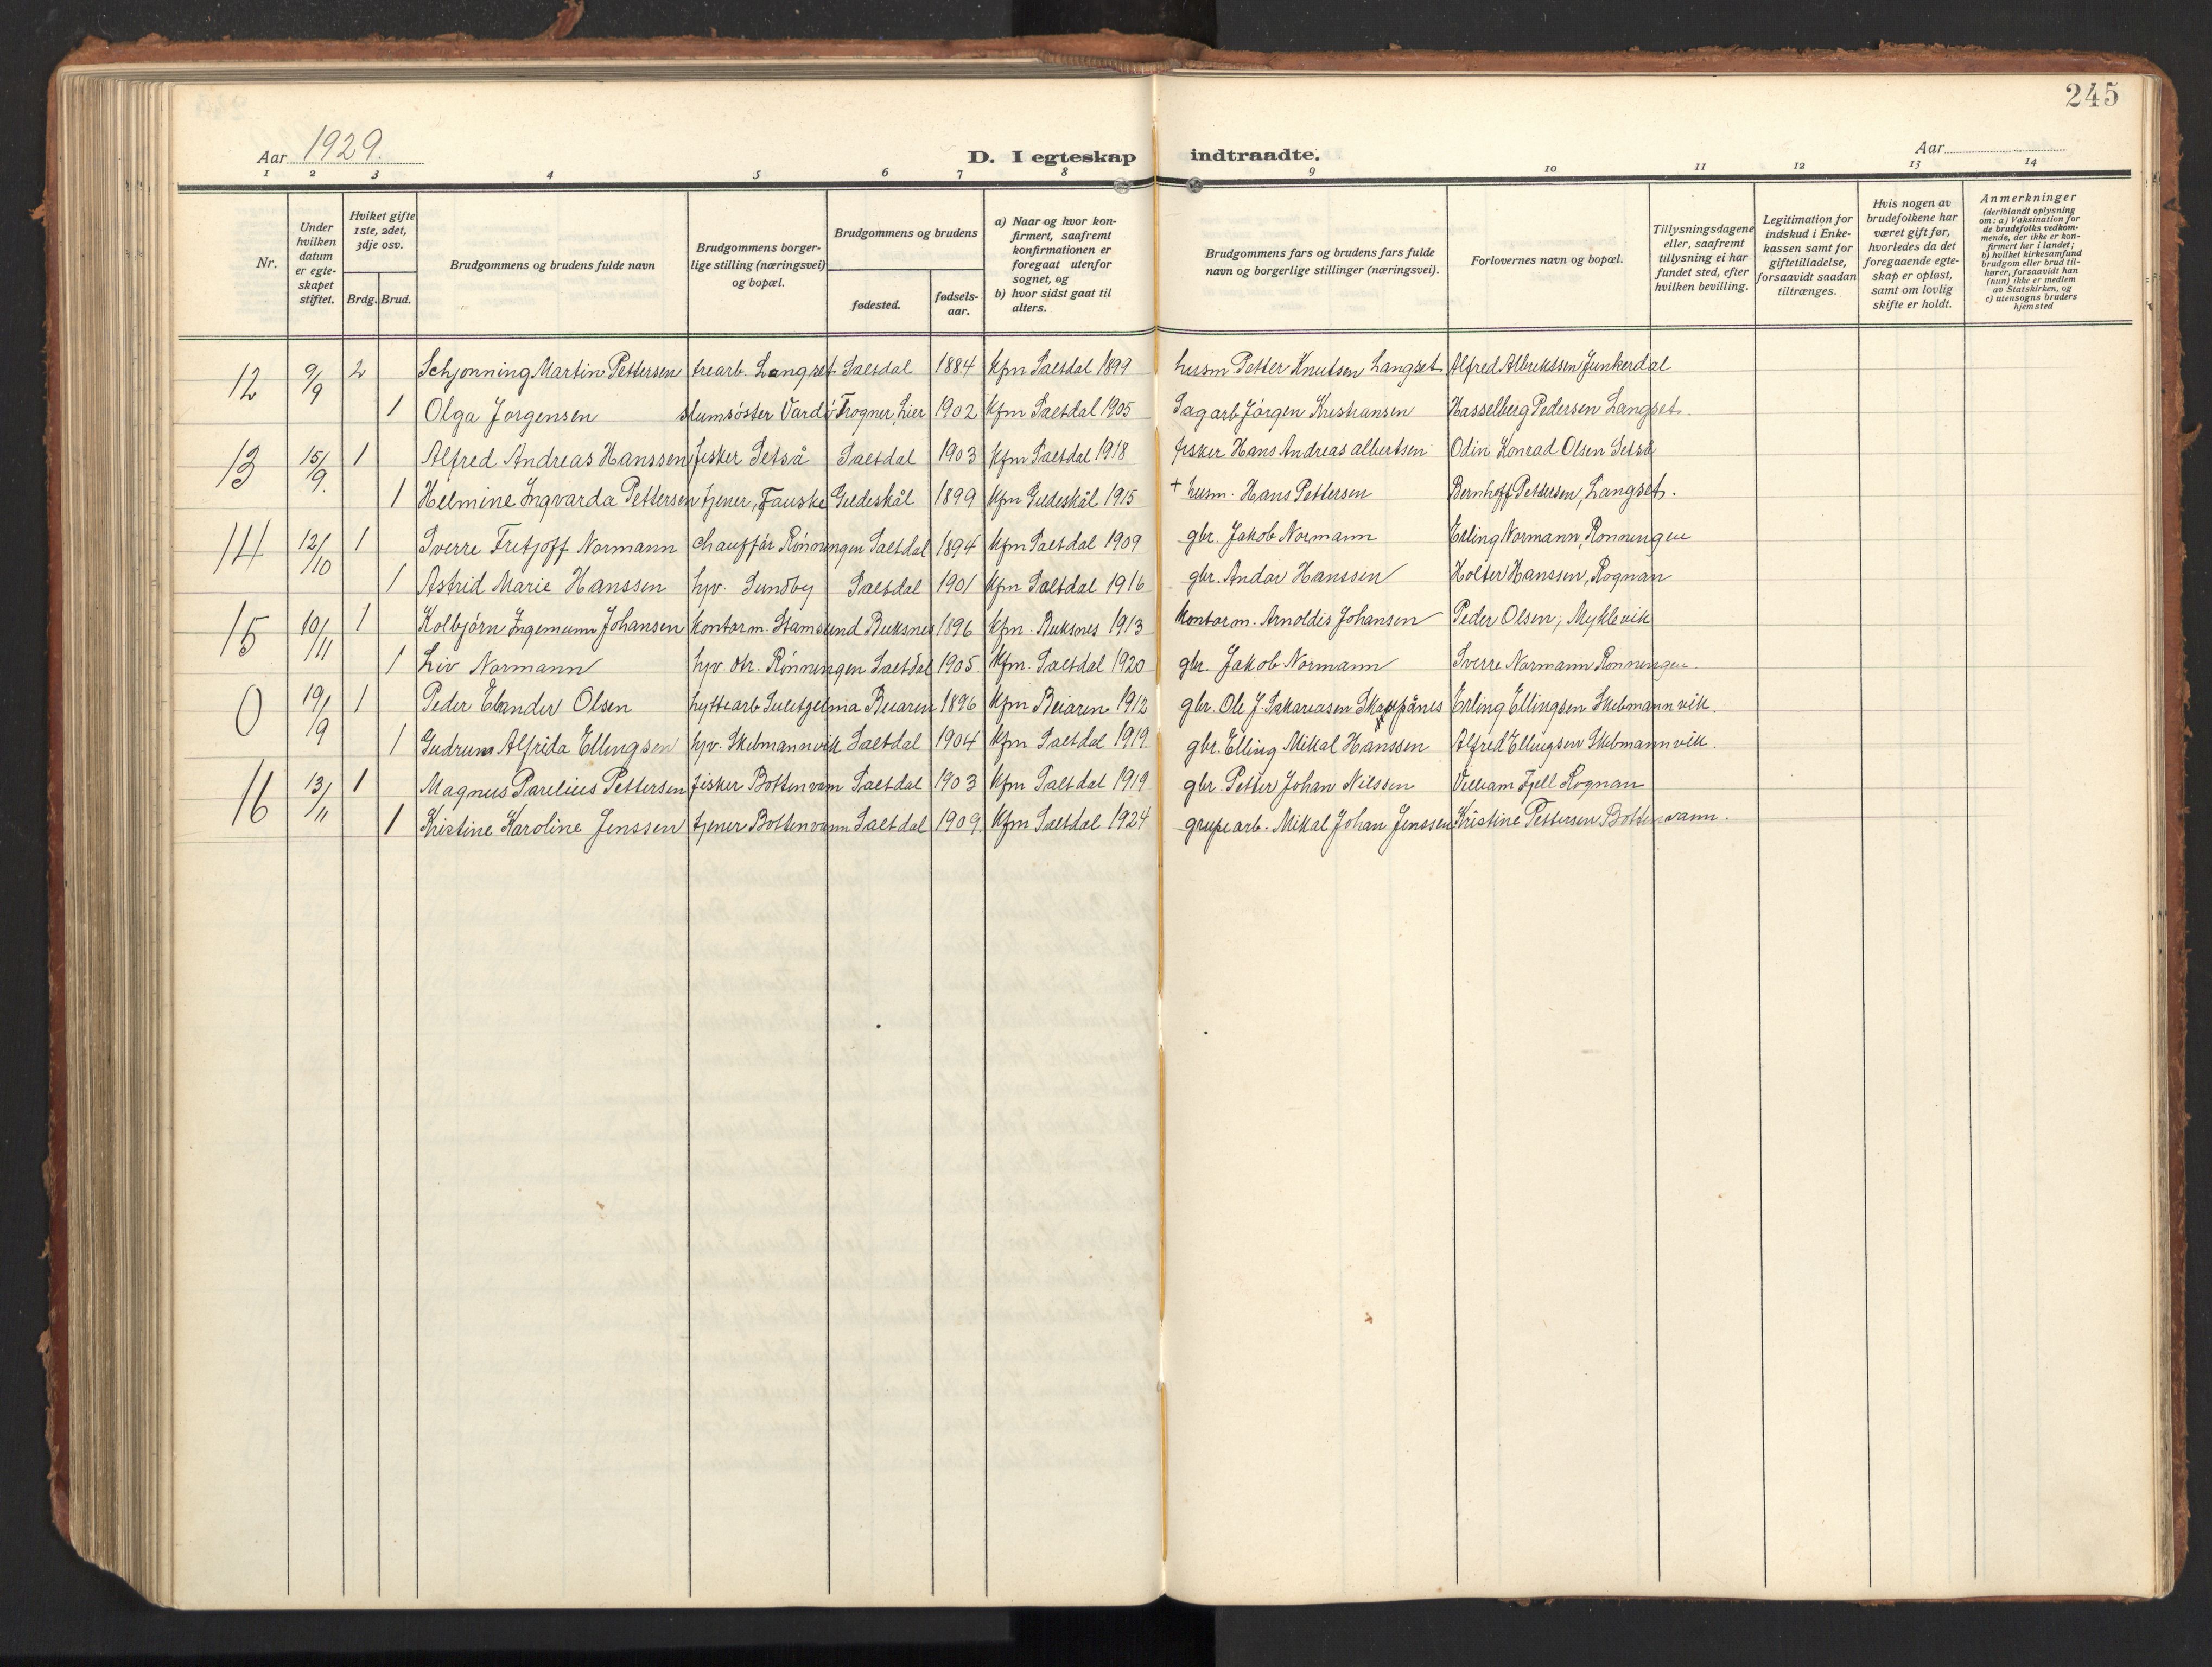 245
Aar 1929.
D. I egteskap indtraadte.
Aar
1 2 3 4 5 6 7 8 9 10 11 12 13 14
Nr.
Under hvilken datum er egteskapet stiftet.
Hviket gifte 1ste, 2det, 3dje osv.
Brdg. Brud.
Brudgommens og brudens fulde navn
Brudgommens borgerlige stilling (næringsvei) og bopæl.
Brudgommens og brudens
fødested.
fødselsaar.
a) Naar og hvor konfirmert, saafremt konfirmationen er foregaat utenfor sognet, og
b) hvor sidst gaat til alters.
Brudgommens fars og brudens fars fulde navn og borgerlige stillinger (næringsvei).
Forlovernes navn og bopæl.
Tillysningsdagene eller, saafremt tillysning ei har fundet sted, efter hvilken bevilling.
Legitimation for indskud i Enkekassen samt for giftetilladelse, forsaavidt saadan tiltrænges.
Hvis nogen av brudefolkene har været gift før, hvorledes da det foregaaende egteskap er opløst, samt om lovlig skifte er holdt.
Anmerkninger (deriblandt oplysning om: a) Vaksination for de brudefolks vedkommende, der ikke er konfirmert her i landet; b) hvilket kirkesamfund brudgom eller brud tilhører, forsaavidt han (hun) ikke er medlem av Statskirken, og c) utensogns bruders hjemsted
12 9/9 2 Schjonning Martin Pettersen trearb. Langset Saltdal 1884 Kfm Saltdal 1899 husm Petter Knutsen Langset Alfred Albriktsen Junkerdal
1 Olga Jorgensen slumsöster Vardö Frogner, Lier 1902 Kfm Saltdal 1905 Sagarb Jörgen Kristiansen Hasselberg Pedersen Langset.
13 15/9. 1 Alfred Andreas Hanssen fisker Setså Saltdal 1903 Kfm Saltdal 1918 fisker Hans Andreas albertsen Odin Konrad Olsen Setså
1 Helmine Ingvarda Pettersen tjener, Fauske Gildeskål 1899 Kfm Gildeskål 1915 + husm. Hans Pettersen Bernhoff Pettersen, Langset.
14 12/10 1 Sverre Fritjoff Normann chauffár Rönningen Saltdal 1894 Kfm Saltdal 1909 gbr. Jakob Normann Erling Normann, Ronningen
1 Astrid Marie Hanssen hjv. Sundby Saltdal 1901 Kfm Saltdal 1916 gbr. Andor Hanssen Holter Hanssen, Rognan
15 10/11 1 Kolbjörn Ingemunn Johansen kontorm. Stamsund Buksnes 1896 Kfm. Buksnes 1913 kontorm. Arnoldis Johansen Peder Olsen, Myklevik
1 Liv Normann hjv. dtr. Rönningen Saltdal 1905. Kfm. Saltdal 1920 gbr. Jakob Normann Sverre Normann Ronningen.
0 19/9 1 Peder Olsen hyttearb Sulitjelma Beiaren 1896 Kfm Beiaren 1912 gbr. Ole J. Sakariasen Erling Ellingsen Skibmannvik.
1 Gudrun Alfrida Ellingsen hjv. Skibmannvik Saltdal 1904 Kfm Saltdal 1919. gbr. Elling Mikal Hanssen Alfred Ellingsen Skibmannvik.
16 13/11 1 Magnus Parelius Pettersen fisker Bottenvann Saltdal 1903 Kfm Saltdal 1919 gbr. Petter Johan Nilssen William Fjell Rognan
1 Kristine Karoline Jenssen tjener Bottenvann Saltdal 1909 Kfm Saltdal 1924 grupearb. Mikal Johan Jenssen Kristine Pettersen Bottenvann.